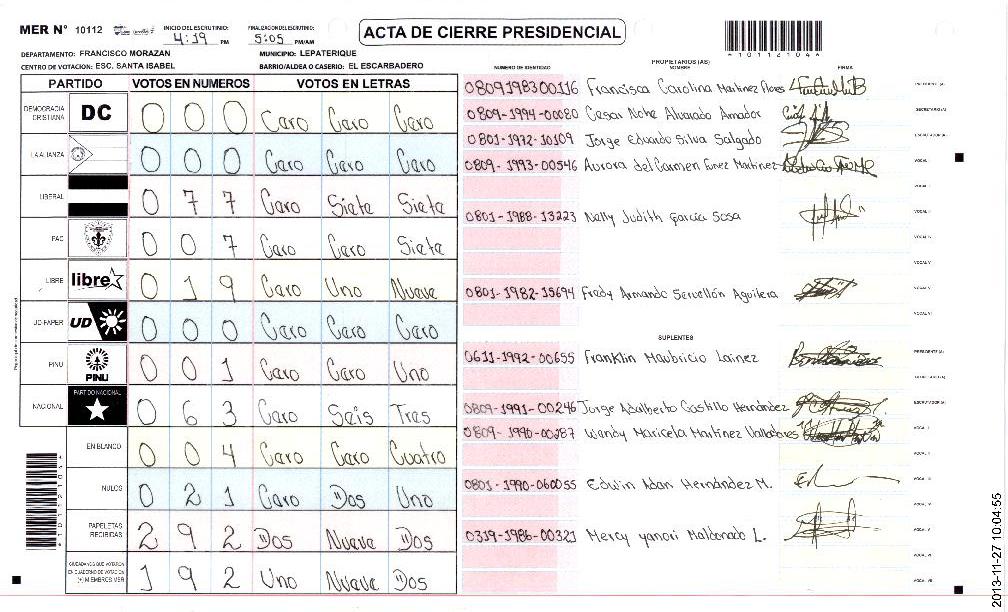 MER N° 10112 INICIO DEL ESCRUTINIO: 4:19 PM FINALIZACION DEL ESCRUTINIO: 5:05 PM/AM ACTA DE CIERRE PRESIDENCIAL
DEPARTAMENTO: FRANCISCO MORAZAN MUNICIPIO: LEPATERIQUE
CENTRO DE VOTACION: ESC. SANTA ISABEL BARRIO/ALDEA O CASERIO: EL ESCARBADERO
PARTIDO VOTOS EN NUMEROS VOTOS EN LETRAS
DEMOCRACIA CRISTIANA DC 0 0 0 Cero Cero Cero
LA ALIANZA 0 0 0 Cero Cero Cero
LIBERAL 0 7 7 Cero Siete Siete
PAC 0 0 7 Cero Cero Siete
LIBRE libre 0 1 9 Cero Uno Nueve
UD-FAPER UD 0 0 0 Cero Cero Cero
PINU PINU 0 0 1 Cero Cero Uno
NACIONAL PARTIDO NACIONAL 0 6 3 Cero Seis Tres
EN BLANCO 0 0 4 Cero Cero Cuatro
NULOS 0 2 1 Cero Dos Uno
PAPELETAS RECIBIDAS 2 9 2 Dos Nueve Dos
CIUDADANOS QUE VOTARON EN CUADERNO DE VOTACION (+) MIEMBROS MER 1 9 2 Uno Nueve Dos
NUMERO DE IDENTIDAD PROPIETARIOS (AS) NOMBRE FIRMA
0809198300116 Francisca Carolina Martinez Flores PRESIDENTE(A)
0809-1994-00080 Cesar Nohe Alvarado Amador SECRETARIO(A)
0801-1972-10109 Jorge Eduardo Silva Salgado ESCRUTADOR(A)
0809-1993-00546 Aurora del Carmen Funez Martinez VOCAL
VOCAL I
0801-1988-13223 Nelly Judith garcia Sosa VOCAL II
VOCAL IV
VOCAL V
0801-1982-15694 Fredy Armando Servellón Aguilera VOCAL V
VOCAL VI
SUPLENTES
0611-1992-00655 Franklin Maubricio Lainez PRESIDENTE(A)
SECRETARIO(A)
0809-1991-00246 Jorge Adalberto Castillo Hernández ESCRUTADOR(A)
0809-1990-00287 Wendy Maricela Martinez Valladares VOCAL I
VOCAL II
0801-1990-060055 Edwin Adan Hernández M. VOCAL III
VOCAL IV
0319-1986-00321 Mercy yanori Maldonado L. VOCAL V
VOCAL VI
VOCAL VII
*101121044*
2013-11-27 10:04:55